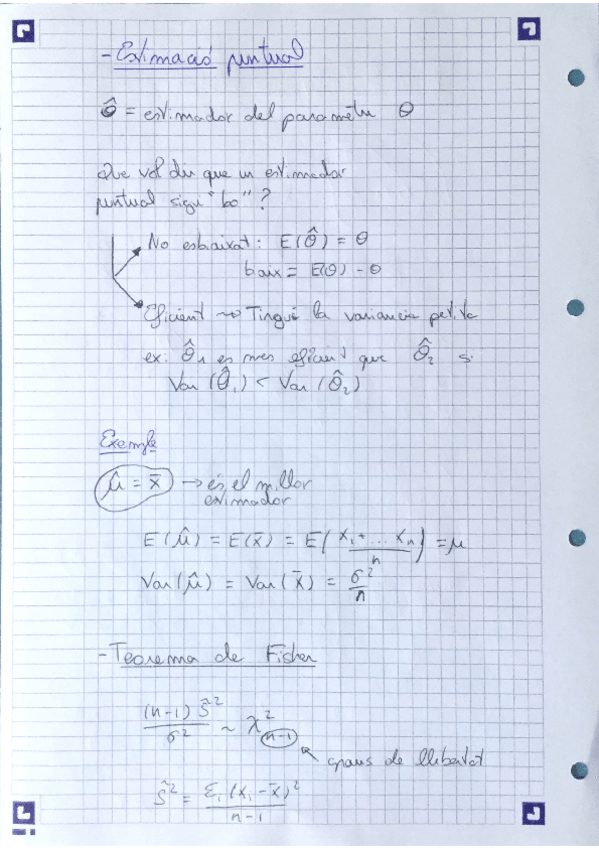 - Estimació puntual
θ̂ = estimador del parametre θ
Que vol dir que un estimador
puntual sigui "bo"?
No esbiaixat: E(θ̂) = θ
biaix = E(θ) - θ
Eficient → Tingui la variancia petita
ex: θ̂₁ es mes eficient que θ̂₂ si
Var (θ̂₁) < Var (θ̂₂)
Exemple
μ̂ = x̄ → és el millor
estimador
E(μ̂) = E(x̄) = E(x₁ + ... xₙ / n) = μ
Var(μ̂) = Var(x̄) = σ²/n
- Teorema de Fisher
(n-1) Ŝ² / σ² ~ χ²ₙ₋₁
graus de llibertat
Ŝ² = Σᵢ (xᵢ - x̄)² / n-1